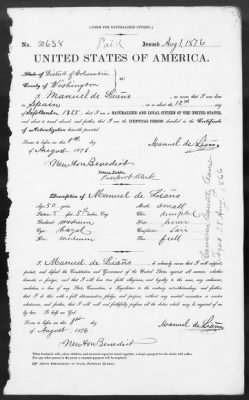 [FORM FOR NATURALIZED CITIZEN.]
No. 2638 Paid Issued Aug 1, 1876
UNITED STATES OF AMERICA.
State of District of Columbia
County of Washington
I, Manuel de Llano, do swear that I was born
in Spain, on or about the 12th day
of September 1825; that I am a NATURALIZED AND LOYAL CITIZEN OF THE UNITED STATES,
and about to travel abroad; and further, that I am the IDENTICAL PERSON described in the Certificate
of Naturalization herewith presented.
Sworn to before me this 1st day
of August 1876
Manuel de Llano
Newton Benedict
Notary Public
Description of Manuel de Llano
Age, 50 years
Stature, 5 ft 5 inches, Eng.
Forehead, medium
Eyes, hazel
Nose, medium
Mouth, small
Chin, dimpled
Hair, brown
Complexion, fair
Face, full
I, Manuel de Llano, do solemnly swear that I will support,
protect, and defend the Constitution and Government of the United States against all enemies, whether
domestic or foreign; and that I will bear true faith, allegiance, and loyalty to the same, any ordinance,
resolution, or law of any State, Convention, or Legislature to the contrary notwithstanding; and further,
that I do this with a full determination, pledge, and purpose, without any mental reservation or evasion
whatsoever; and further, that I will well and faithfully perform all the duties which may be required of me
by law. So help me God.
Sworn to before me this 1st day
of August, 1876
Manuel de Llano
Newton Benedict